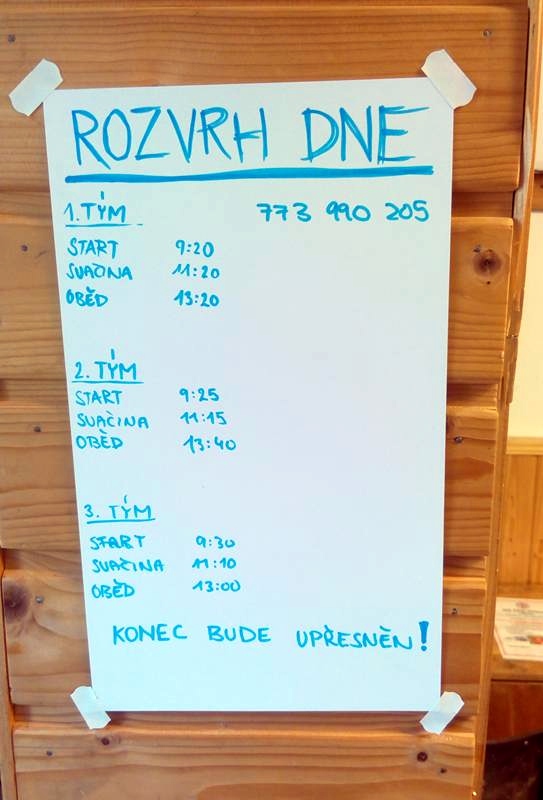 ROZVRH DNE
1. TÝM 773 990 205
START 9:20
SVAČINA 11:20
OBĚD 13:20
2. TÝM
START 9:25
SVAČINA 11:15
OBĚD 13:40
3. TÝM
START 9:30
SVAČINA 11:10
OBĚD 13:00
KONEC BUDE UPŘESNĚN!